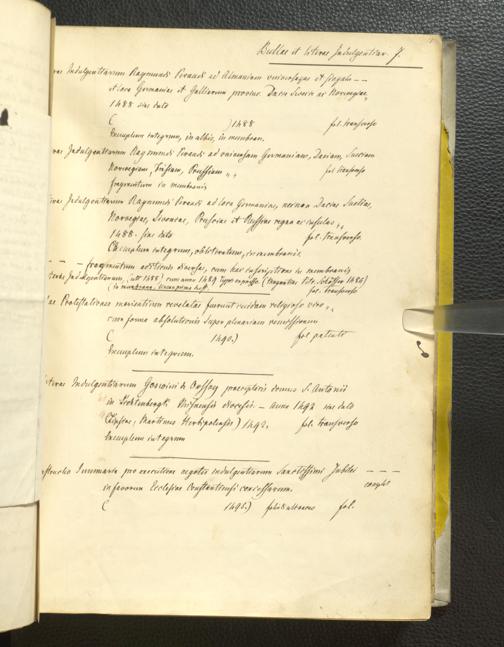 Bullae et literae Indulgentiar. 7.
rae Indulgentiarum Raymundi Peraudi ad Almaniam universam et singula – –
et loca Germaniae et Galliarum provinc. Dacia Suecia ac Norvegiae„
1488 sine dato
( )1488 fol. transverso
Exemplum integrum, in albis, in membran.
rae Indulgentiarum Raymundi Peraudi ad universam Germaniam, Daciam, Sueciam
Norvegiam, Frisiam, Prussiam „ fol. transverso
fragmentum in membranis
rae Indulgentiarum Raymundi Peraudi ad loca Germaniae, necnon Daciae Sueciae,
Norvegiae, Livoniae, Prusciae et Russiae regna ac insulas „
1488. sine dato fol. transverso.
Exemplum integrum, obliteratum, in membranis.
– – – fragmentum editionis diversae, cum hac inscriptione in membranis
Indulgentiarum 1488 anno 1489 typis expressae (Moguntiae Petr. Schöffer 1486)
in membrana fol. transverso
ae Protestationes morientium revelatae fuerunt cuidam religioso viro „
cum forma absolutionis super plenariam remissionem
( 1490.) fol. patente
Exemplum integrum.
iterae Indulgentiarum Goswini de Orssoy praeceptoris domus S. Antonii
in Lichtenbergk Misnensis diocesis. – Anno 1492 sine dato
(Lipsiae, Martinus Herbipolensis) 1492. fol. transverso
Exemplum integrum
nstructio Summaria pro executione negotii indulgentiarum Sanctissimi Jubilei – – –
in favorem Ecclesiae Constantiensis concessarum. complet
( 1491.) fol.